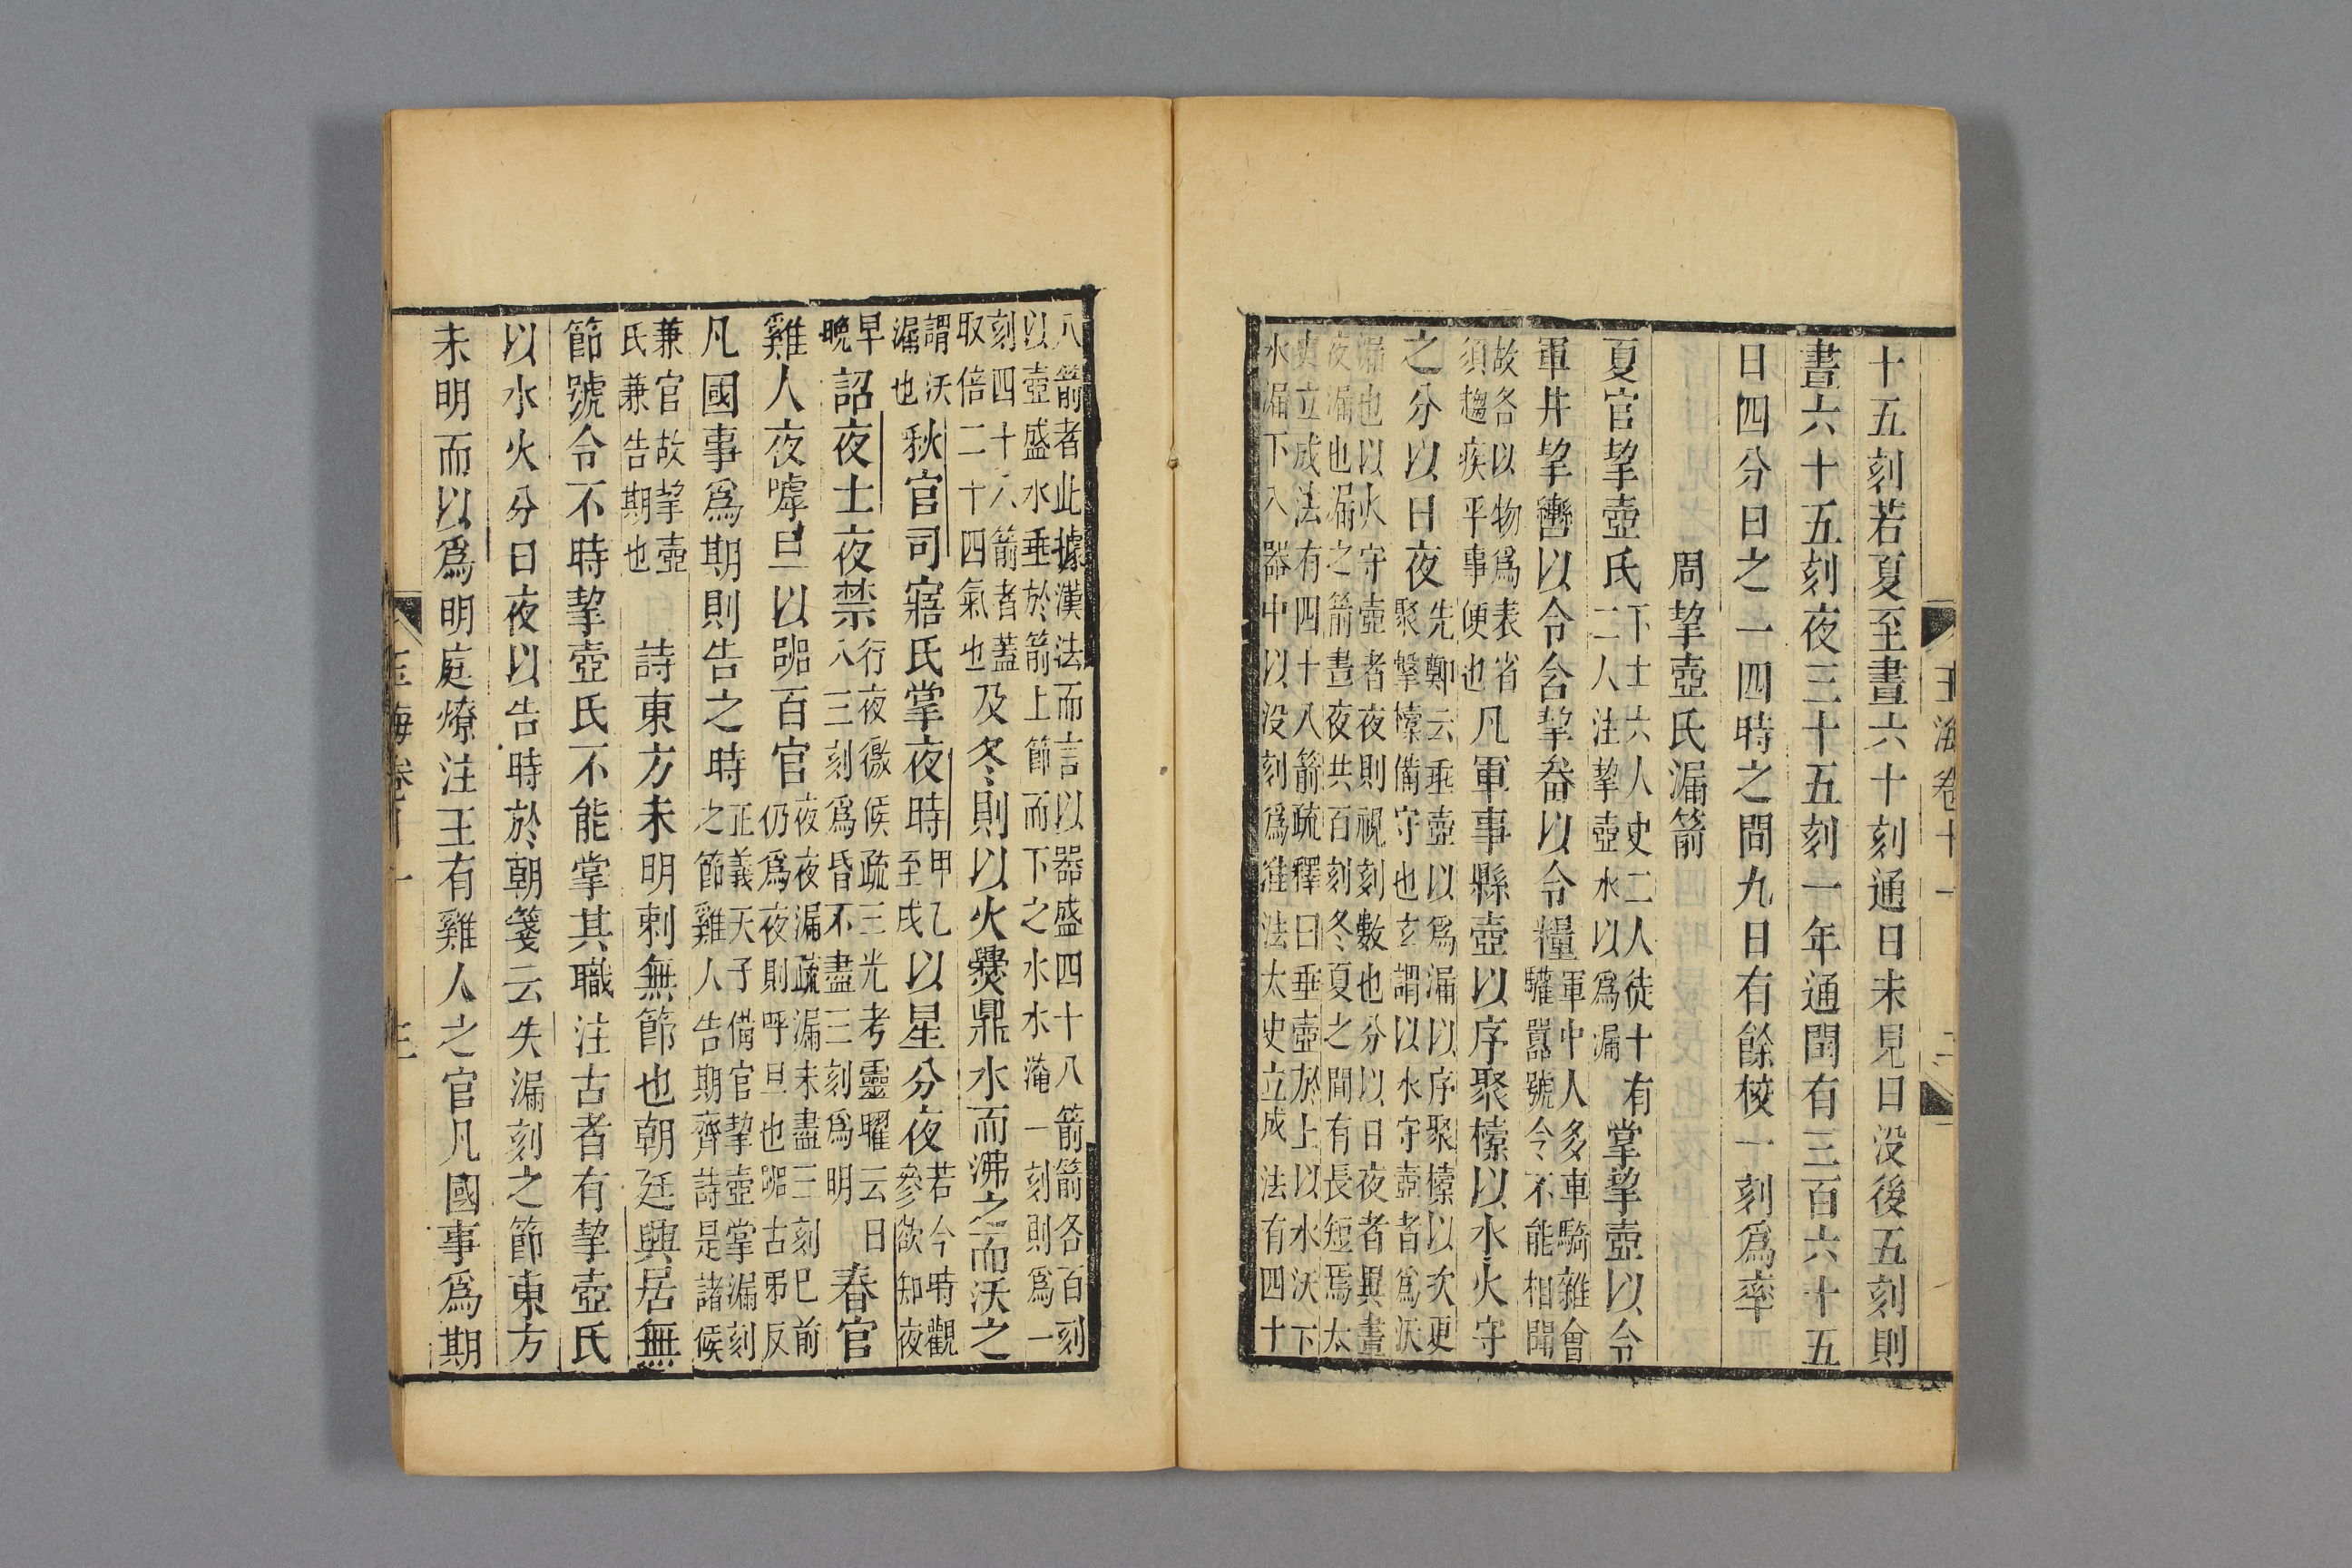 玉海卷十一
二
十五刻若夏至晝六十刻通日未見日没後五刻則
晝六十五刻夜三十五刻一年通閏有三百六十五
日四分日之一四時之間九日有餘校一刻爲率
周挈壺氏漏箭
夏官挈壺氏
下士六人史二人徒十有
二人注挈壺水以爲漏
掌挈壺以令
軍井挈轡以令舍挈畚以令糧
軍中人多車騎雜會
驩嚻號令不能相聞
故各以物爲表省
須趨疾平事便也
凡軍事縣壺以序聚㯓以水火守
之分以日夜
先鄭云垂壺以爲漏以序聚㯓以次更
聚擊㯓備守也玄謂以水守壺者爲沃
漏也以火守壺者夜則視刻數也分以日夜者異晝
夜漏也漏之箭晝夜共百刻冬夏之間有長短焉太
史立成法有四十八箭疏釋曰垂壺於上以水沃下
水漏下入器中以没刻爲准法太史立成法有四十
八箭者此據漢法而言以器盛四十八箭箭各百刻
以壺盛水垂於箭上節而下之水水淹一刻則爲一
刻四十八箭者蓋
取倍二十四氣也
及冬則以火爨鼎水而沸之而沃之
謂沃
漏也
秋官司寤氏掌夜時
甲乙
至戌
以星分夜
若今時觀
參欲知夜
早
晩
詔夜士夜禁
行夜徼候疏三光考靈曜云日
入三刻爲昏不盡三刻爲明
春官
雞人夜嘑旦以嘂百官
夜夜漏疏漏未盡三刻巳前
仍爲夜則呼旦也嘂古弔反
凡國事爲期則告之時
正義天子備官挈壺掌漏刻
之節雞人告期齊詩是諸候
兼官故挈壺
氏兼告期也
詩東方未明剌無節也朝廷興居無
節號令不時挈壺氏不能掌其職注古者有挈壺氏
以水火分日夜以告時於朝箋云失漏刻之節東方
未明而以爲明庭燎注王有雞人之官凡國事爲期
玉海卷十一
三